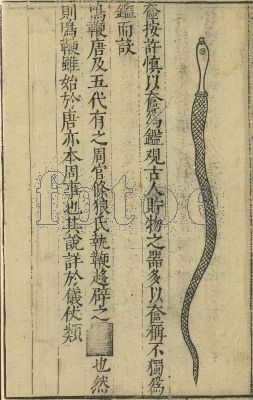 奩按許慎以奩為鑑觀古人貯物之器多以奩稱不獨為
鑑而設
鳴鞭唐及五代有之周官條狼氏執鞭趨辟之 也然
則鳴鞭雖始於唐亦本周事也其說詳於儀仗類
fotoe